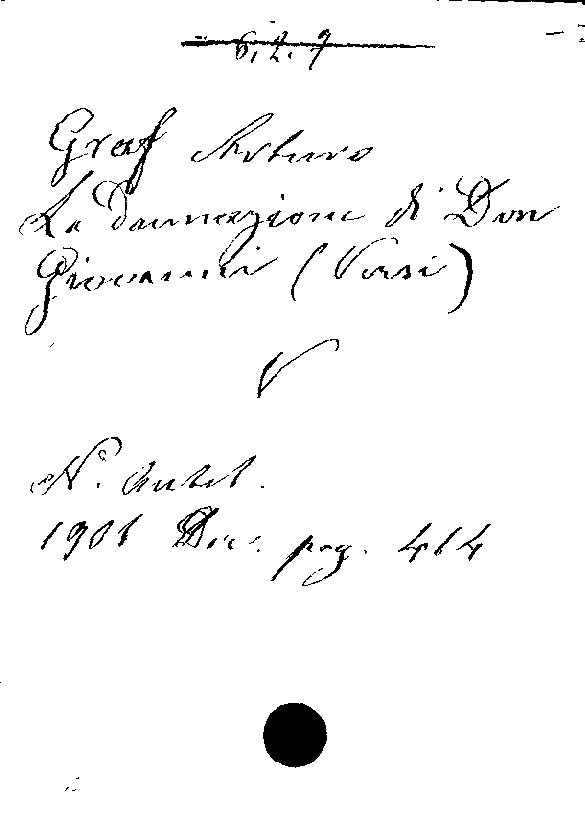 6.2.9
Graf Arturo
La Dannazione di Don
Giovanni (Versi)
V
Na. Antol.
1901 Dic. pag. 414